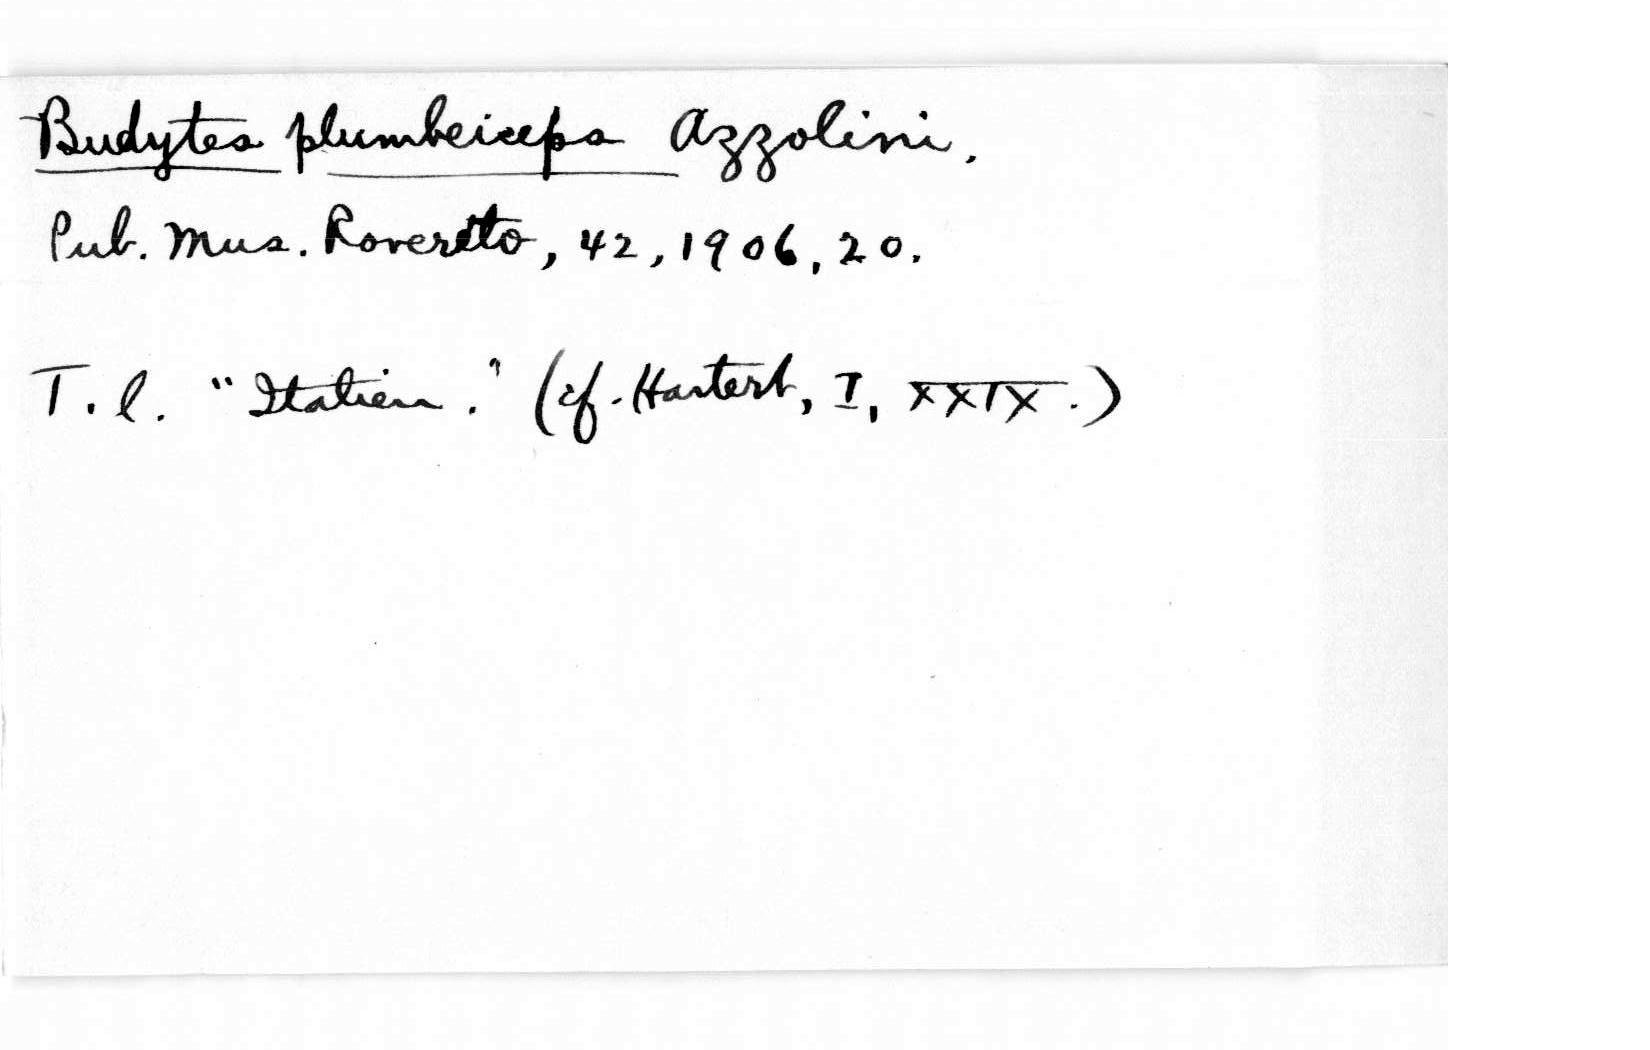 Budytes plumbeiceps Azzolini.
Pub. Mus. Rovereto, 42, 1906, 20.
T. l. "Italien." (cf. Hartert, I, XXIX.)